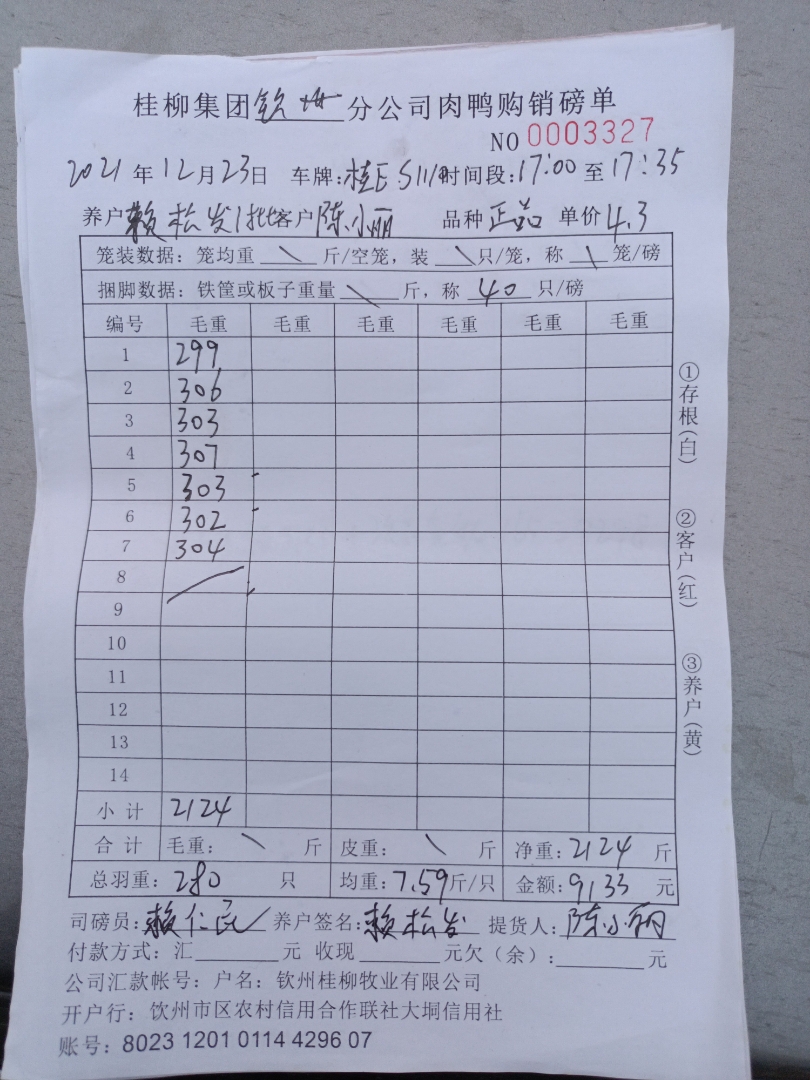 桂柳集团钦州分公司肉鸭购销磅单
NO 0003327
2021年12月23日 车牌:桂E S111 时间段:17:00至17:35
养户赖松发1批客户陈小丽 品种正品 单价4.3
笼装数据: 笼均重 \ 斤/空笼, 装 \ 只/笼, 称 \ 笼/磅
捆脚数据: 铁筐或板子重量 \ 斤, 称 40 只/磅
编号 毛重 毛重 毛重 毛重 毛重 毛重
1 299
2 306
3 303
4 307
5 303
6 302
7 304
8
9
10
11
12
13
14
小计 2124
合计 毛重: \ 斤 皮重: \ 斤 净重:2124斤
总羽重:280只 均重:7.59斤/只 金额:9133元
司磅员:赖仁民 养户签名:赖松发 提货人:陈小丽
付款方式: 汇 元 收现 元欠(余): 元
公司汇款帐号: 户名: 钦州桂柳牧业有限公司
开户行: 饮州市区农村信用合作联社大垌信用社
账号: 8023 1201 0114 4296 07
①存根(白)
②客户(红)
③养户(黄)